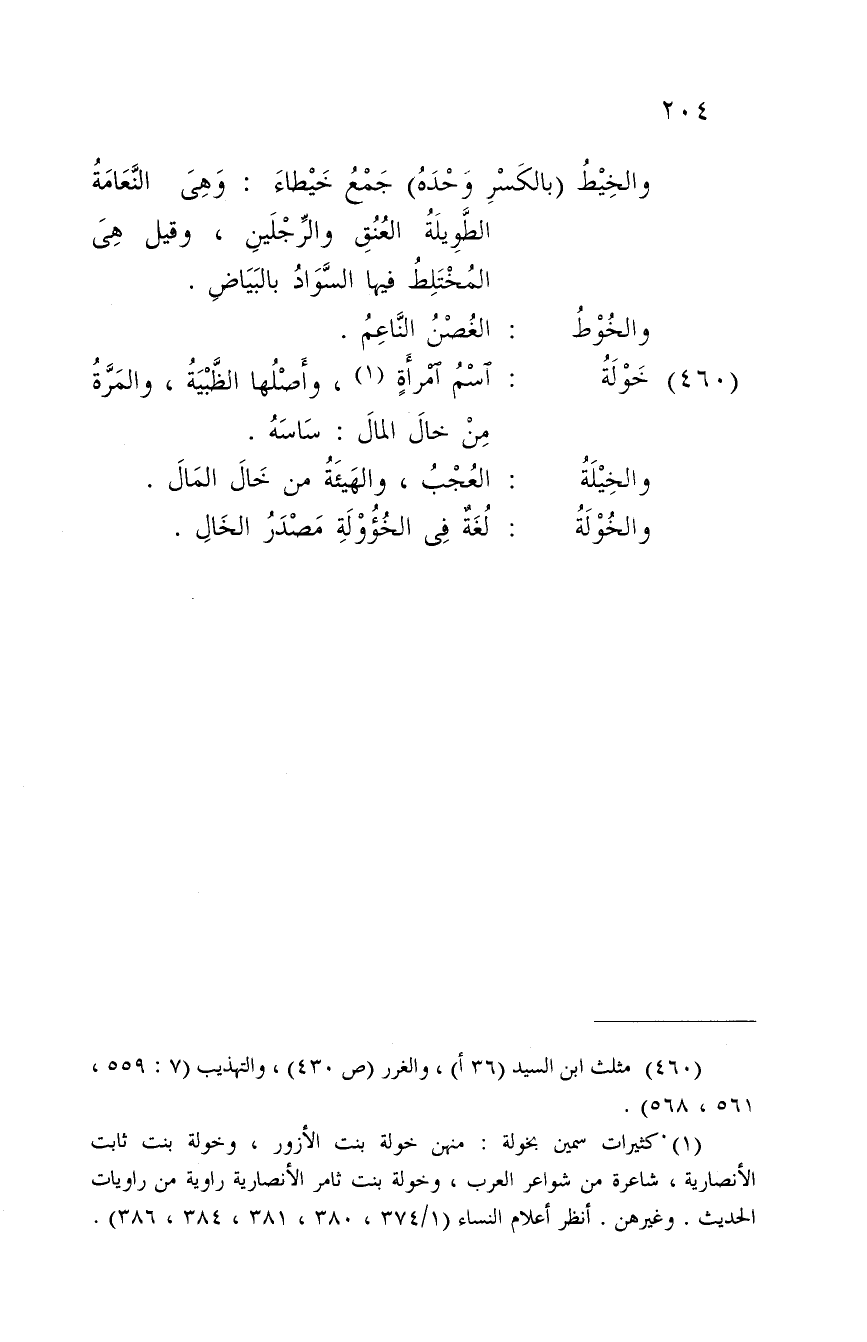 ٢٠٤
والخِيْطُ (بالكَسْرِ وَحْدَهُ) جَمْعُ خَيْطاءَ : وَهِىَ النَّعَامَةُ
الطَّوِيلَةُ العُنُقِ والرِّجْلَينِ ، وقيل هِىَ
المُخْتَلِطُ فيها السَّوَادُ بالبَيَاضِ .
والخُوْطُ : الغُصْنُ النَّاعِمُ .
(٤٦٠) خَوْلَةُ : ٱسْمُ ٱمْرأَةٍ (١) ، وأَصْلُها الظَّبْيَةُ ، والمَرَّةُ
مِنْ خالَ المالَ : سَاسَهُ .
والخِيْلَةُ : العُجْبُ ، والهَيئَةُ من خَالَ المَالَ .
والخُوْلَةُ : لُغَةٌ فِى الخُؤُوْلَةِ مَصْدَرُ الخَالِ .
(٤٦٠) مثلث ابن السيد (٣٦ أ) ، والغرر (ص ٤٣٠) ، والتهذيب (٧ : ٥٥٩ ،
٥٦١ ، ٥٦٨) .
(١) كثيرات سمين بخولة : منهن خولة بنت الأزور ، وخولة بنت ثابت
الأنصارية ، شاعرة من شواعر العرب ، وخولة بنت ثامر الأنصارية راوية من راويات
الحديث . وغيرهن . أنظر أعلام النساء (٣٧٤/١ ، ٣٨٠ ، ٣٨١ ، ٣٨٤ ، ٣٨٦) .